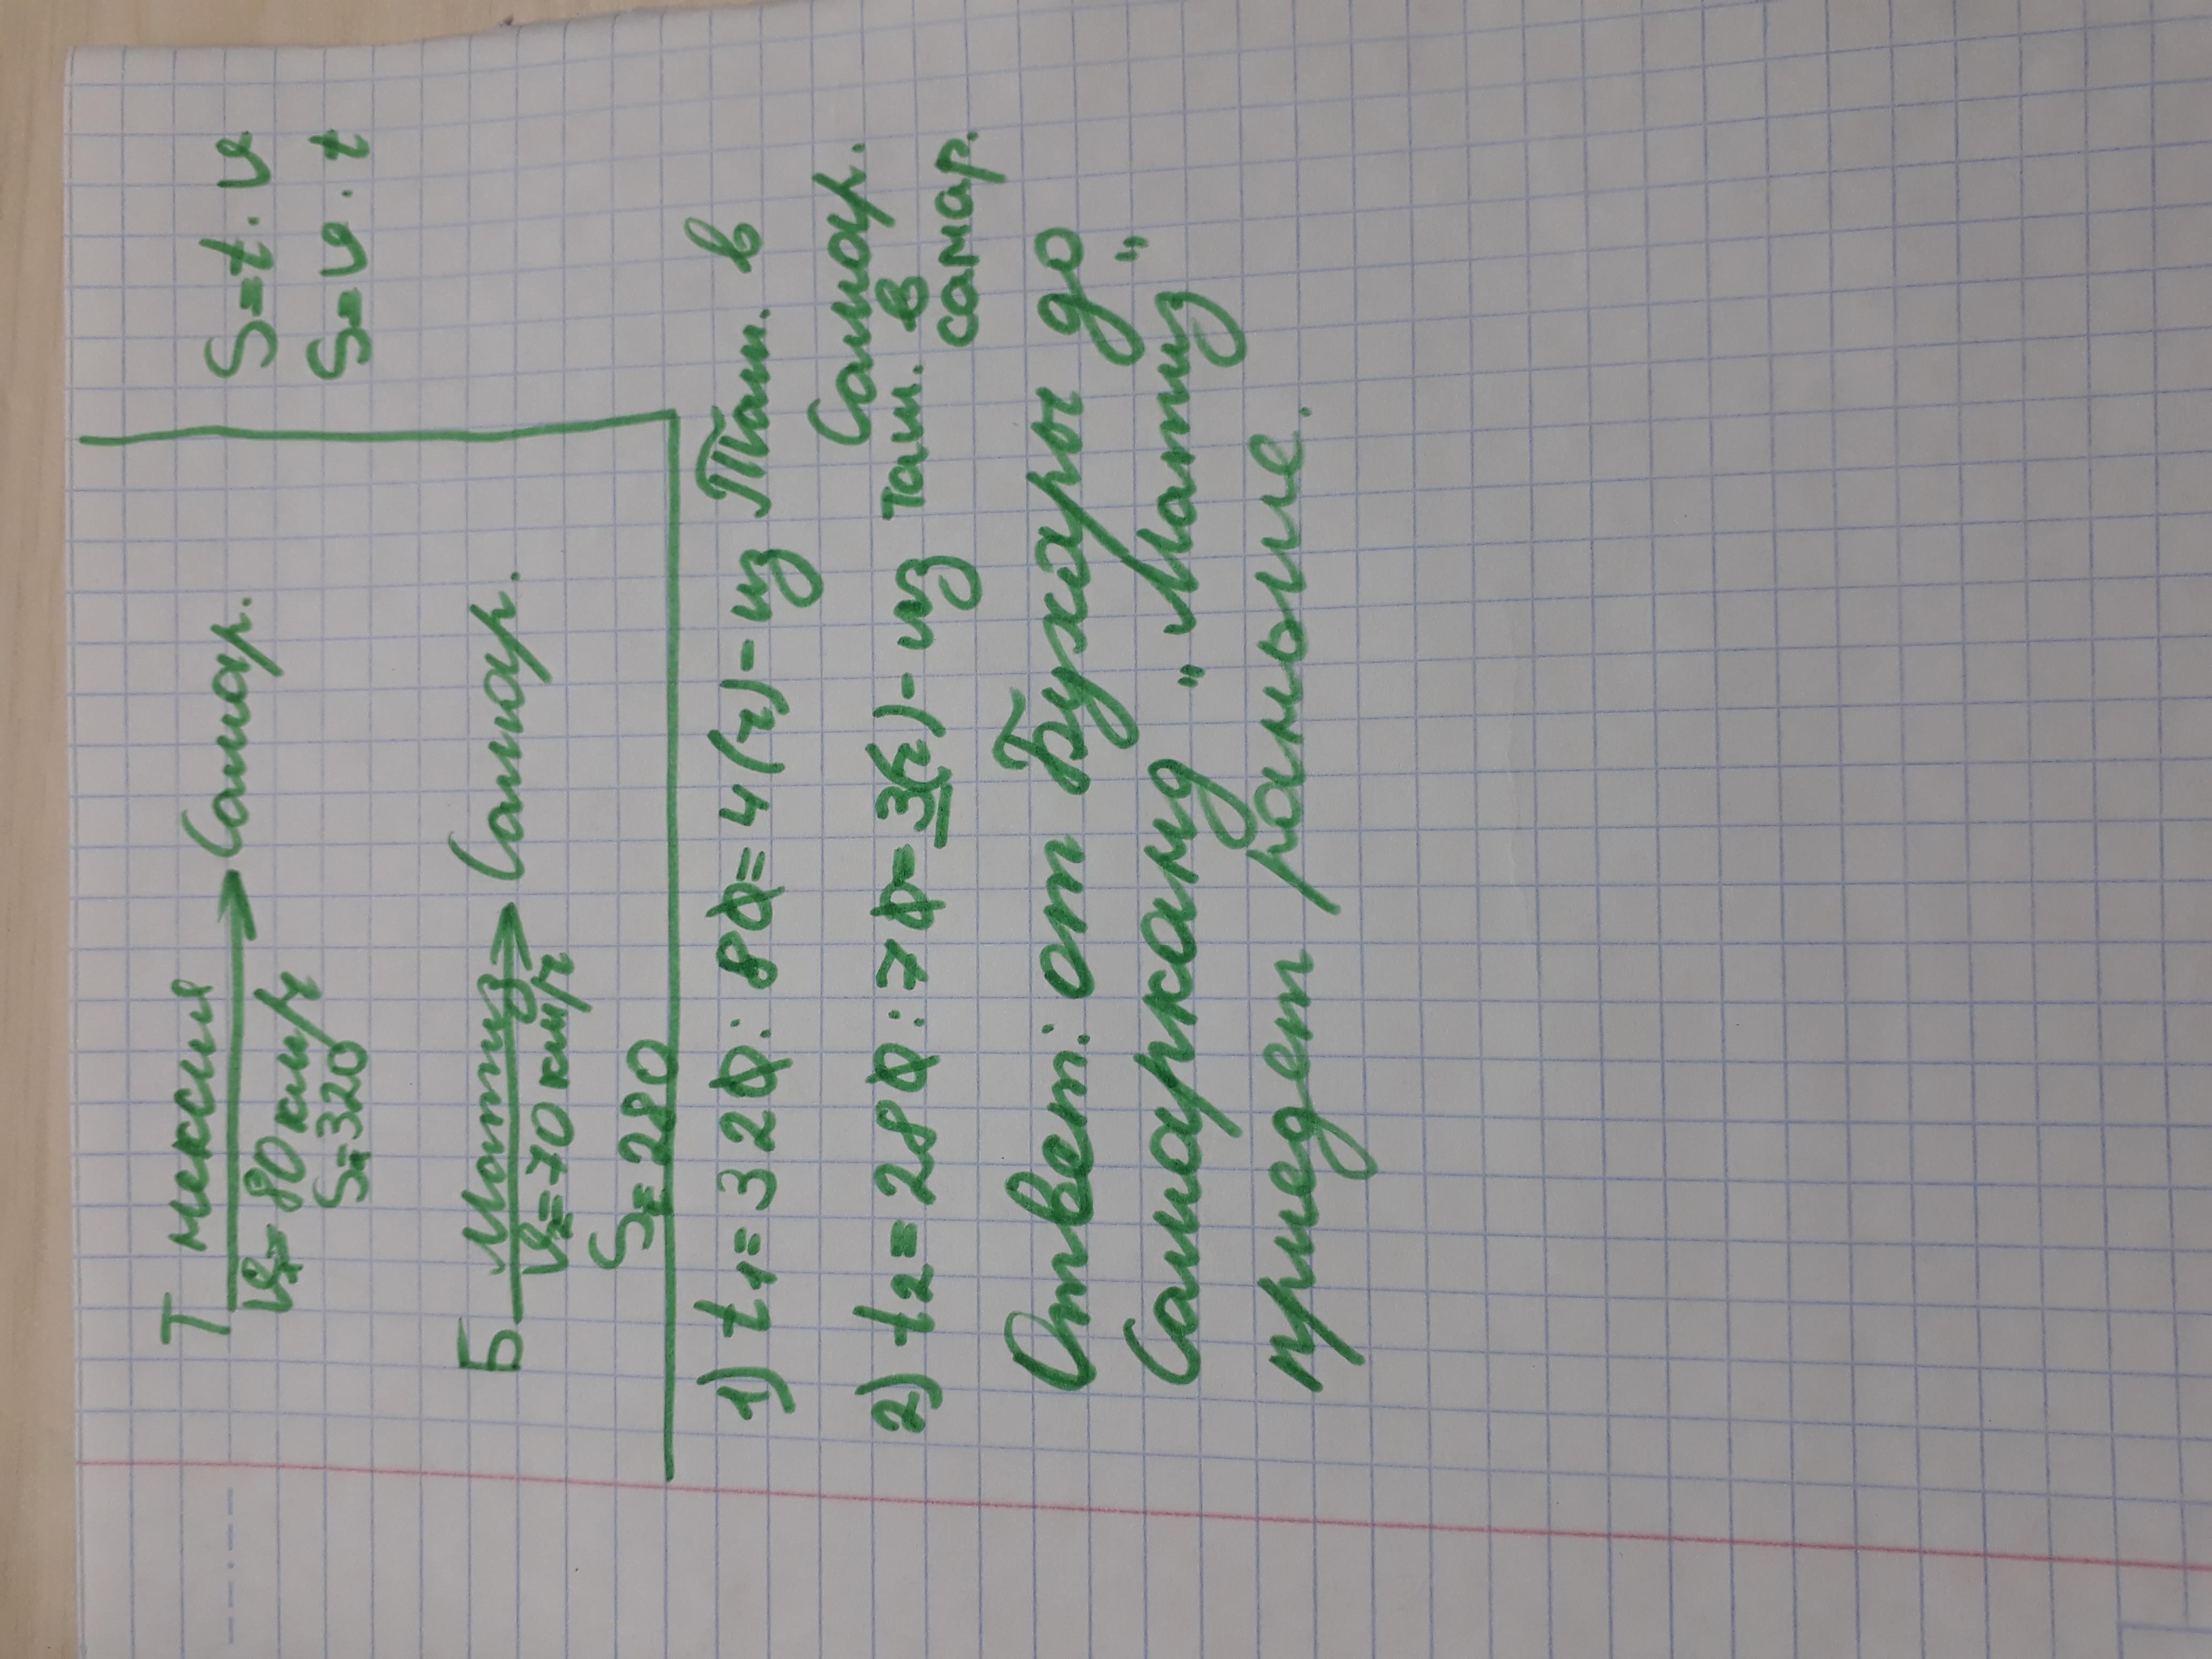 Т нексия → Самар. S=t·v
v₁=80 км/ч S=v·t
S₁=320
Б Матиз → Самар.
v₂=70 км/ч
S₂=280
1) t₁=320:80=4(ч)-из Таш. в
Самар.
2) t₂=280:70=3(ч)-из Таш. в
самар.
Ответ: от Бухары до
Самарканд „Матиз"
приедет раньше.